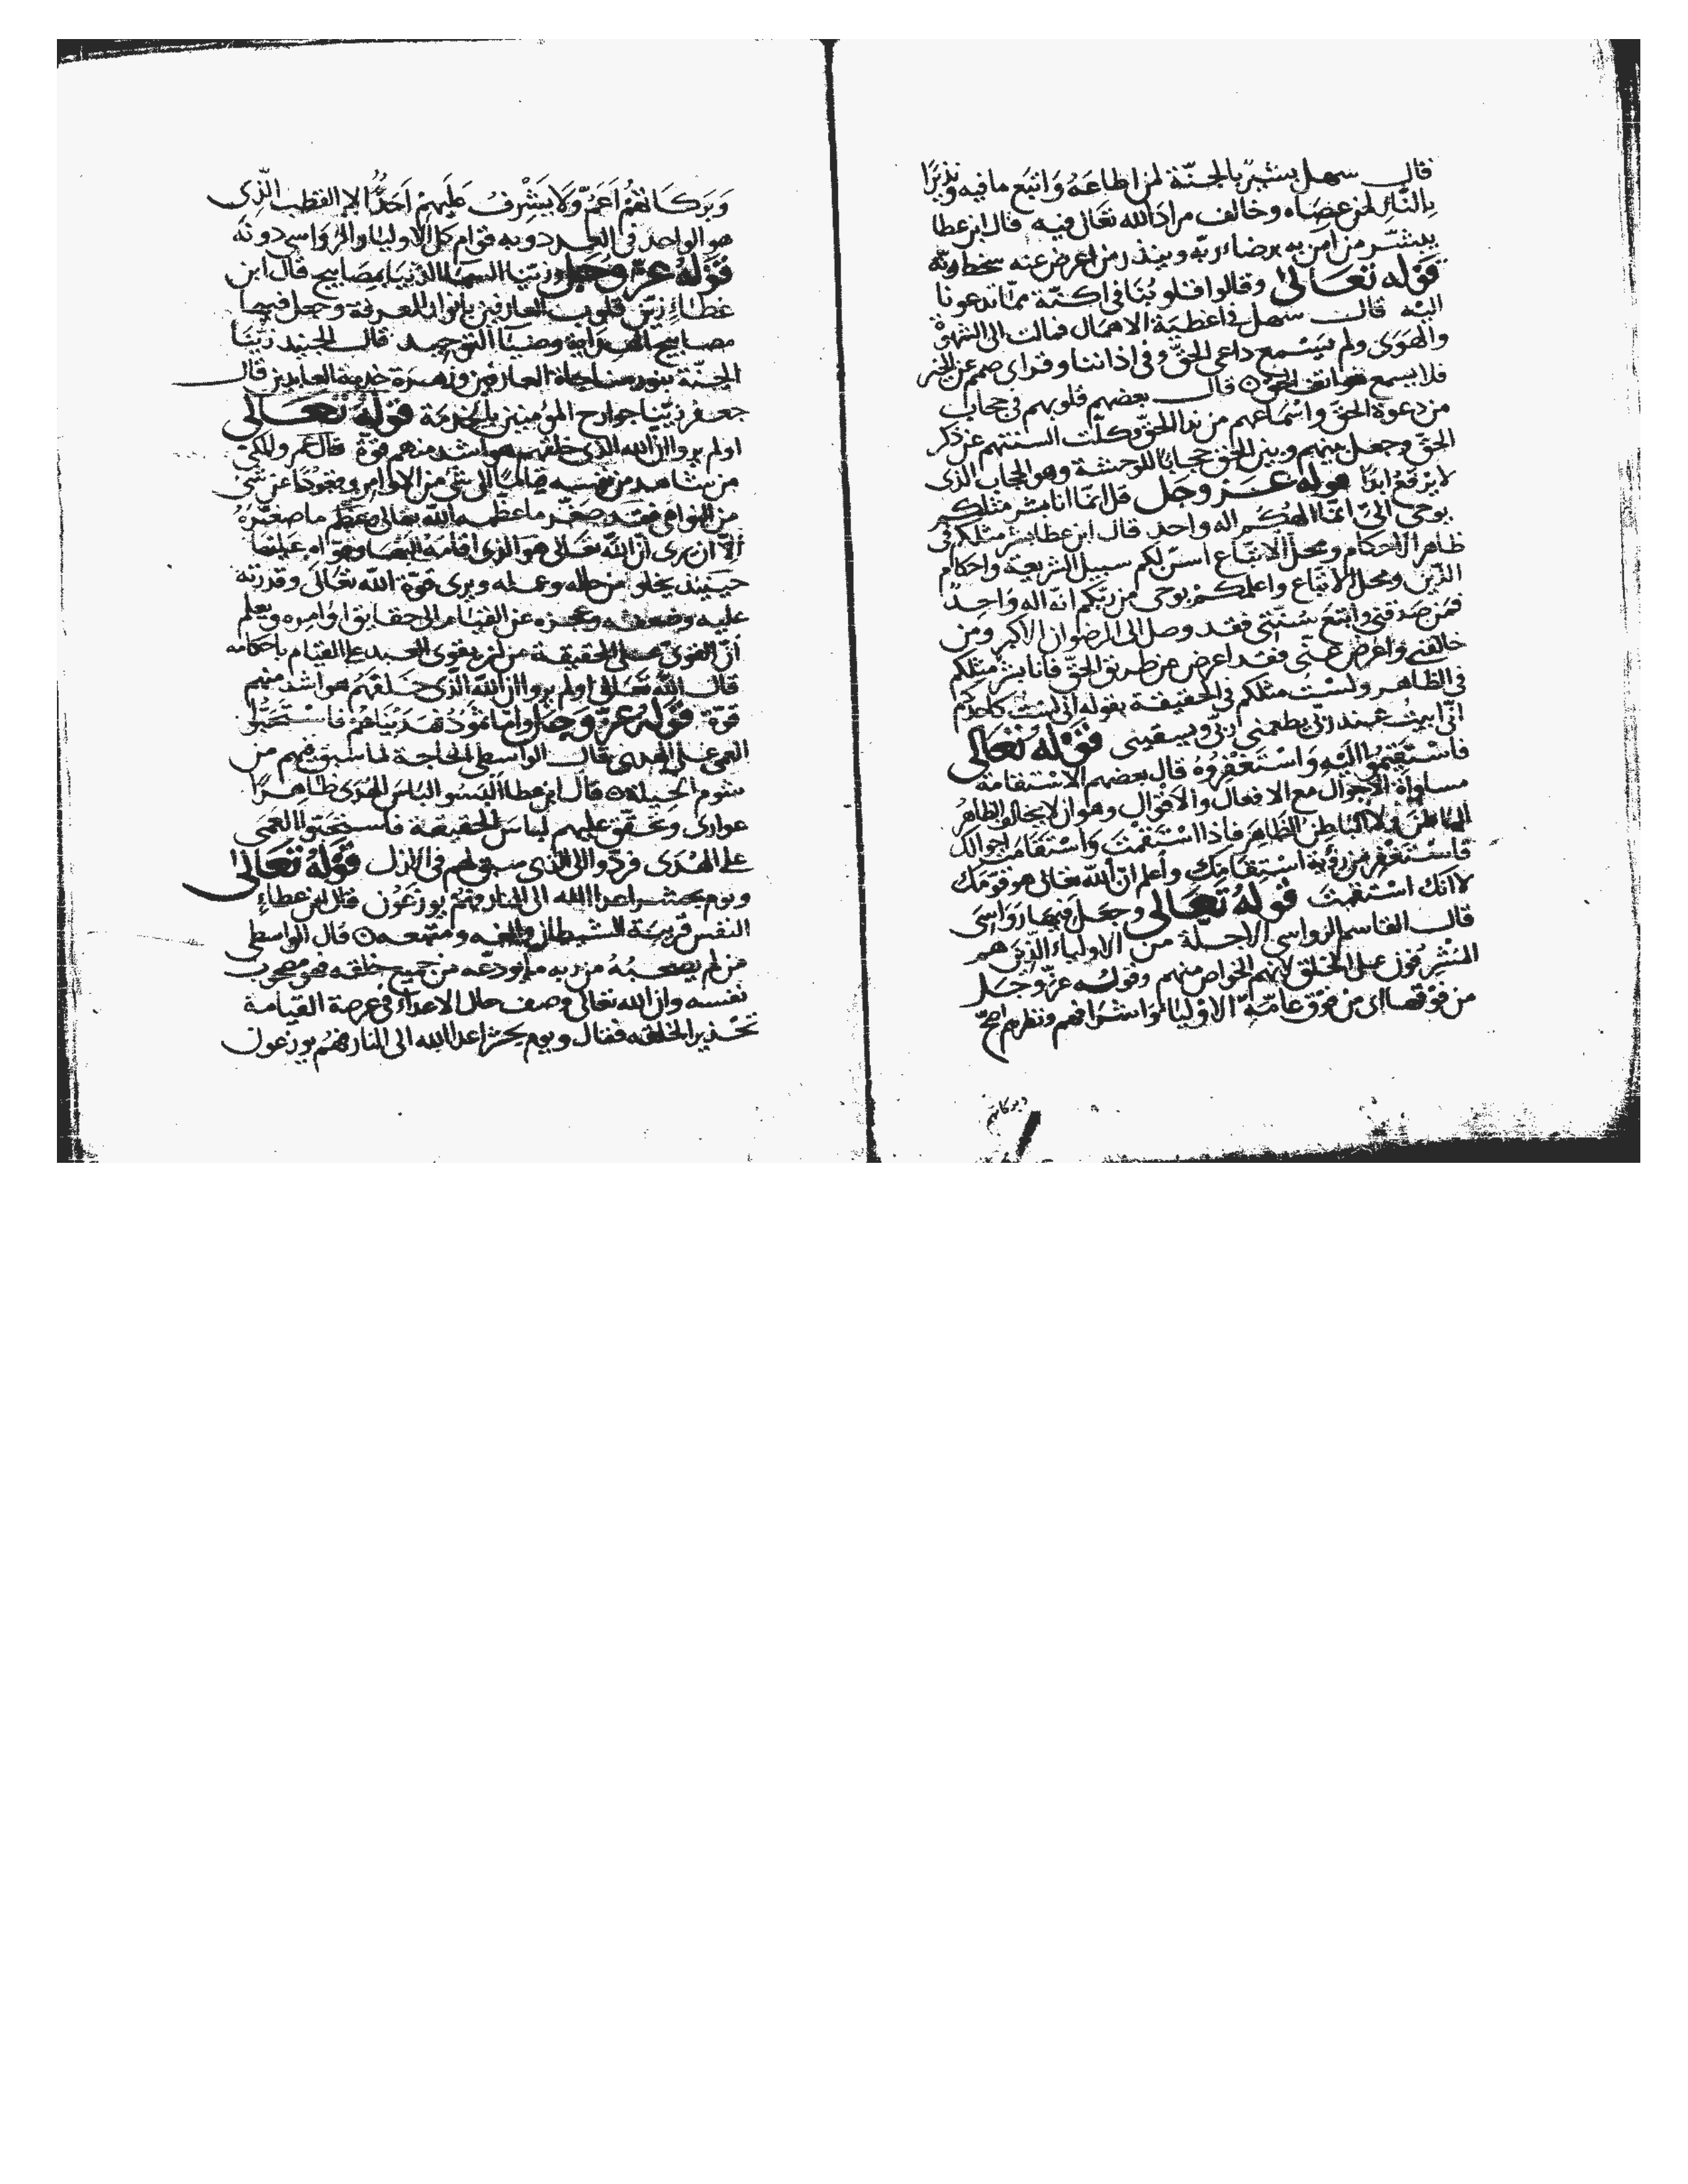 قال سهل بشير بالجنّة لمن اطاعه واتبع ما فيه ونذيرا
بالنّار لمن عصاه وخالف مراد الله تعالى فيه قال ابن عطا
يبشّر من امن به برضاء ربّه وينذر من اعرض عنه سخطه
قوله تعالى وقالوا قلوبنا في اكنّة ممّا تدعونا
اليه قال سهل في اغطية الاهمال فمالت الى الشهوة
والهوى ولم يسمع داعي الحقّ وفي اذاننا وقراى صمم عن الخير
فلا يسمع هواتف الحق قال بعضهم قلوبهم في حجاب
من دعوة الحق واسماعهم من ندا الحقّ وكلّت السنتهم عن ذكر
الحق وجعل بينهم وبين الحق حجابا للوحشة وهو الحجاب الذى
لا يرقع ابدًا قوله عز وجل قل انّما انا بشر مثلكم
يوحى الىّ انّما الهكم اله واحد قال ابن عطا بشر مثلكم في
ظاهر الاحكام ومحلّ الاتباع اسنّ لكم سبيل الشريعة واحكام
الدّين ومحل الاتباع واعلمكم يوحى من ربّكم انّه اله واحد
فمن صدقني واتبع سنّتي فقد وصل الى الرضوان الاكبر ومن
خالفني واعرض عنّى فقد اعرض عن طريق الحقّ فانا بشر مثلكم
في الظاهر ولست مثلكم في الحقيقة بقوله اني لست كاحدكم
انّى ابيت عند ربّى يطعمني ربّى ويسقينى قوله تعالى
فاستقيموا اليه واستغفروه قال بعضهم الاستقامة
مساواة الاحوال مع الافعال والاقوال وهو ان لا يخالف الظاهر
الباطن ولا الباطن الظاهر فاذا استقمت واستقامت احوالك
فاستغفر من رؤية استقامتك واعلم انّ الله تعالى هو قوّمك
لا انك استقمت قوله تعالى وجعل فيها رواسى
قال القاسم الرواسي الاجلة من الاولياء الذين هم
المشرفون على الخلق لانهم الخواص منهم وقوله عزّ وجل
من فوقها اى من فوق عامّة الاوليا لمّا اشرافهم ونظرهم اصحّ
وبركاتهم
وبركاتهم اعمّ ولا يشرف عليهم احد الا القطب الّذى
هو الواحد في العدد وبه قوام كل الاوليا والرواسي دونه
قوله عزّ وجل وزيّنا السما الدّنيا بمصابيح قال ابن
عطاء زيّن قلوب العارفين بانوار المعرفة وجعل فيها
مصابيح الهداية وضيا التوحيد قال الجنيد زيّنّا
الجنّة بنور مناجاة العارفين وزهرة خدمة العابدين قال
جعفر زيّنّا جوارح المؤمنين بالخدمة قوله تعالى
اولم يروا ان الله الذى خلقهم هو اشد منهم قوّة قال عمرو المكي
من شاهد من نفسه قيامًا الى شئ من الاوامر وقعودًا عن شئ
من النواهى فقد صغّر ما عظّمه الله تعالى وعظّم ما صغّره
الا ان يرى ان الله تعالى هو الذى اقامه
حينئذ يخلو من حاله وعمله ويرى قوّة الله تعالى وقدرته
عليه وضعفه وعجزه عن القيام الى حقايق اوامره ويعلم
انّ القوىّ على الحقيقة من يقوى العبد على القيام باحكامه
قال الله تعالى اولم يروا ان الله الذى خلقهم هو اشد منهم
قوّة قوله عزّ وجل وامّا ثمود فهديناهم فاستحبّوا
العمى على الهدى قال الواسطي الحاجة لما سبق منهم من
شوم الجبلة قال ابن عطا البسوا لباس الهدى ظاهرًا
عوارى وتحقّق عليهم لباس الحقيقة فاستحبّوا العمى
على الهدى فردّوا الى الذى سبق لهم في الازل قوله تعالى
ويوم يحشر اعدا الله الى النار فهم يوزعون قال ابن عطاء
النفس قرينة الشيطان والفه ومتّبعه قال الواسطى
من لم يصحبه من ربه ما يودعه من جميع خلقه فهو مصحوب
نفسه وان الله تعالى وصف حال الاعداء في عرصة القيامة
تحذيرا لخلقه فقال ويوم يحشر اعدا الله الى النار فهم يوزعون